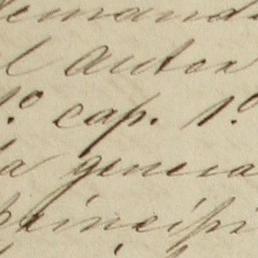 demand
l autor
1.º cap. 1.º
la genera
principi